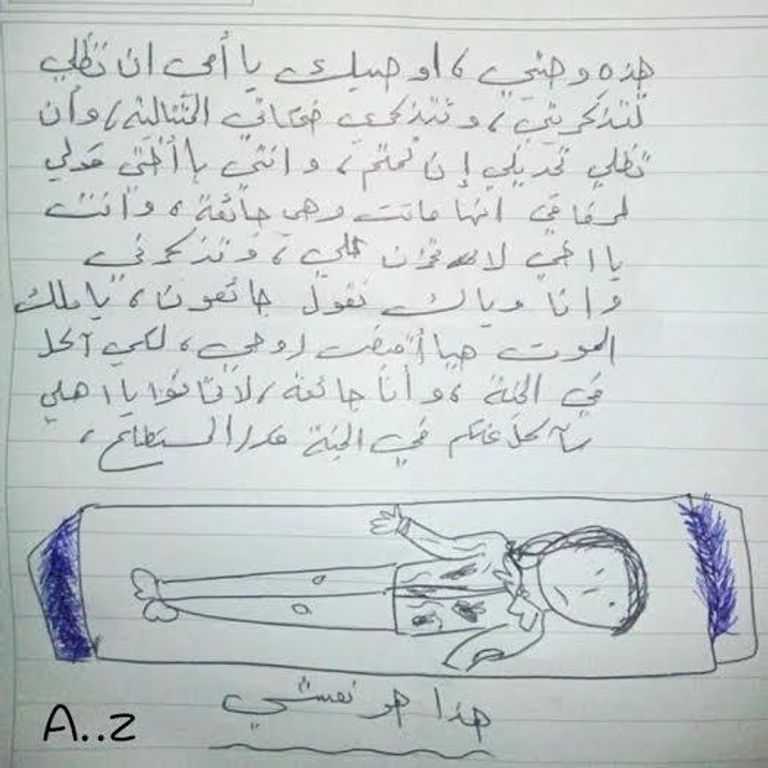 هذه وصيتي ، اوصيك يا أمي ان تظلي
تتذكريني ، وتتذكري ضحكاتي المتتالية ، وأن
تظلي تحديلي إن نمتم ، وانتي يا أختي قولي
لرفاقي انها ماتت وهي جائعة ، وانت
يا اخي لا تحزن علي ، وتذكرني
وانا وياك نقول جائعون ، يا ملك
الموت هيا أقبض روحي ، لكي آكل
في الجنة ، وأنا جائعة ، لا تخافوا يا اهلي
سآكل عنكم في الجنة قدر المستطاع ،
هذا هو نعشي
A..z